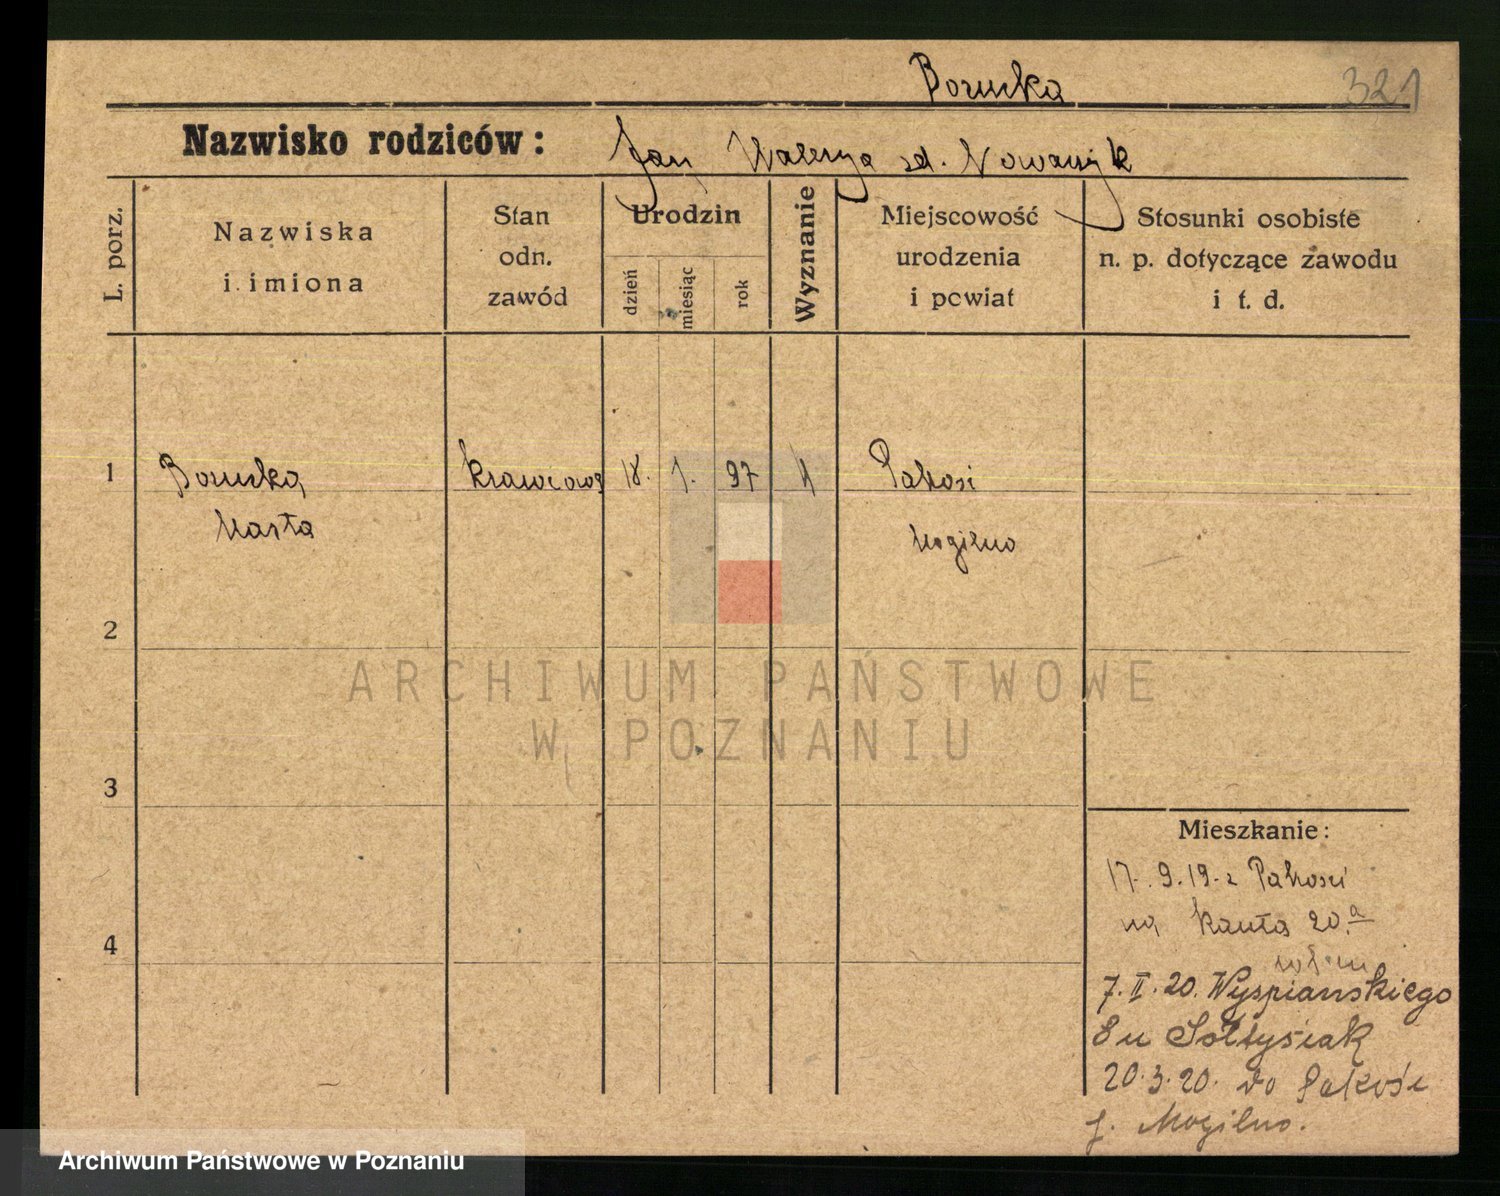 Borucka
321
Nazwisko rodziców: Jan Walerya zd. Nowaczyk
L. porz.
Nazwiska
i imiona
Stan
odn.
zawód
Urodzin
dzień
miesiąc
rok
Wyznanie
Miejscowość
urodzenia
i powiat
Stosunki osobiste
n. p. dotyczące zawodu
i t. d.
1
Borucka
Marta
krawcowa
18. 1. 97
Pakosi
Mogilno
2
3
4
Mieszkanie:
17.9.19 z Pakosci
na Kanta 20.a
7.II.20. Wyspianskiego
8 u Sołtysiak
20.3.20. do Pakości
p. Mogilno.
ARCHIWUM PAŃSTWOWE
W POZNANIU
Archiwum Państwowe w Poznaniu